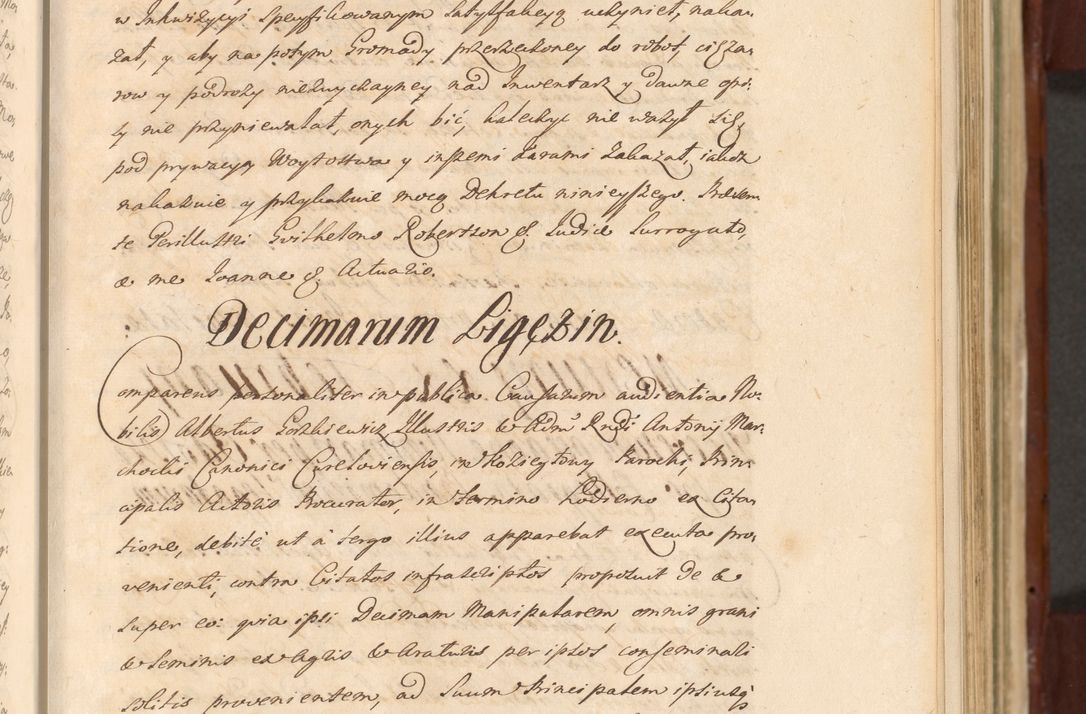 w Inkwizycyi Specyfikowanym Satysfakcyą uczynieł, naka-
zał, y aby na potym Gromady przerzeczoney do robot, cięża-
row y podroży niezwyczayney nad Inwentarz y dawne opi-
sy nie przyniewalał, onych bić, kaleczyć nie ważył się,
pod prywacyą Woytostwa y inszemi karami zakazał, iakoż
nakazuie y przykazuie mocą Dekretu ninieyszego. Præsen-
te Perillustri Gvilhelmo Robertson & Judice Surrogato,
& me Joanne & Actuario.
Decimarum Ligęzin.
Comparens personaliter in publica Causarum audientia No-
bilis Albertus Gorzkiewicz Illustris & Adm Rndi Antonij Mar-
chocki Canonici Cureloviensis, in Kozieglowy Parochi, Prin-
cipalis Actoris Procurator, in termino hodierno ex Cita-
tione, debite ut à tergo illius apparebat executa pro-
venienti, contra Citatos infrascriptos proposuit de &
super eo: quia ipsi Decimam Manipularem, omnis grani
& Seminis ex Agris & Araturis per ipsos conseminali
solitis provenientem, ad Suum Principalem ipsiusq